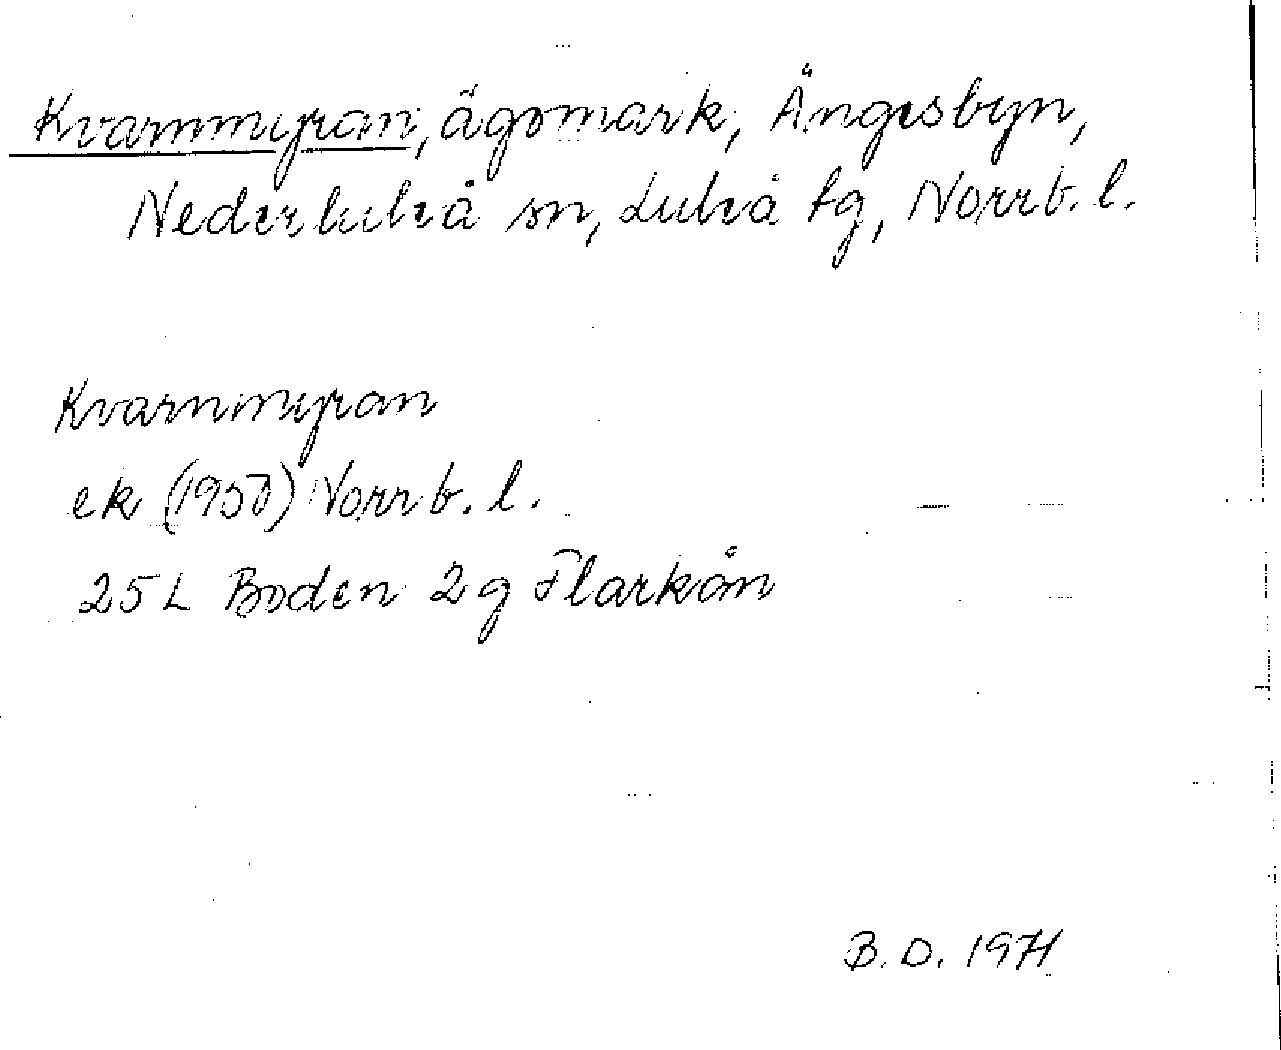 Kvarnmyran, ägomark, Ängesbyn,
Nederluleå sn, Luleå tg, Norrb. l.
Kvarnmyran
ek (1950) Norrb. l.
25L Boden 2g Flarkån
B.D. 1971